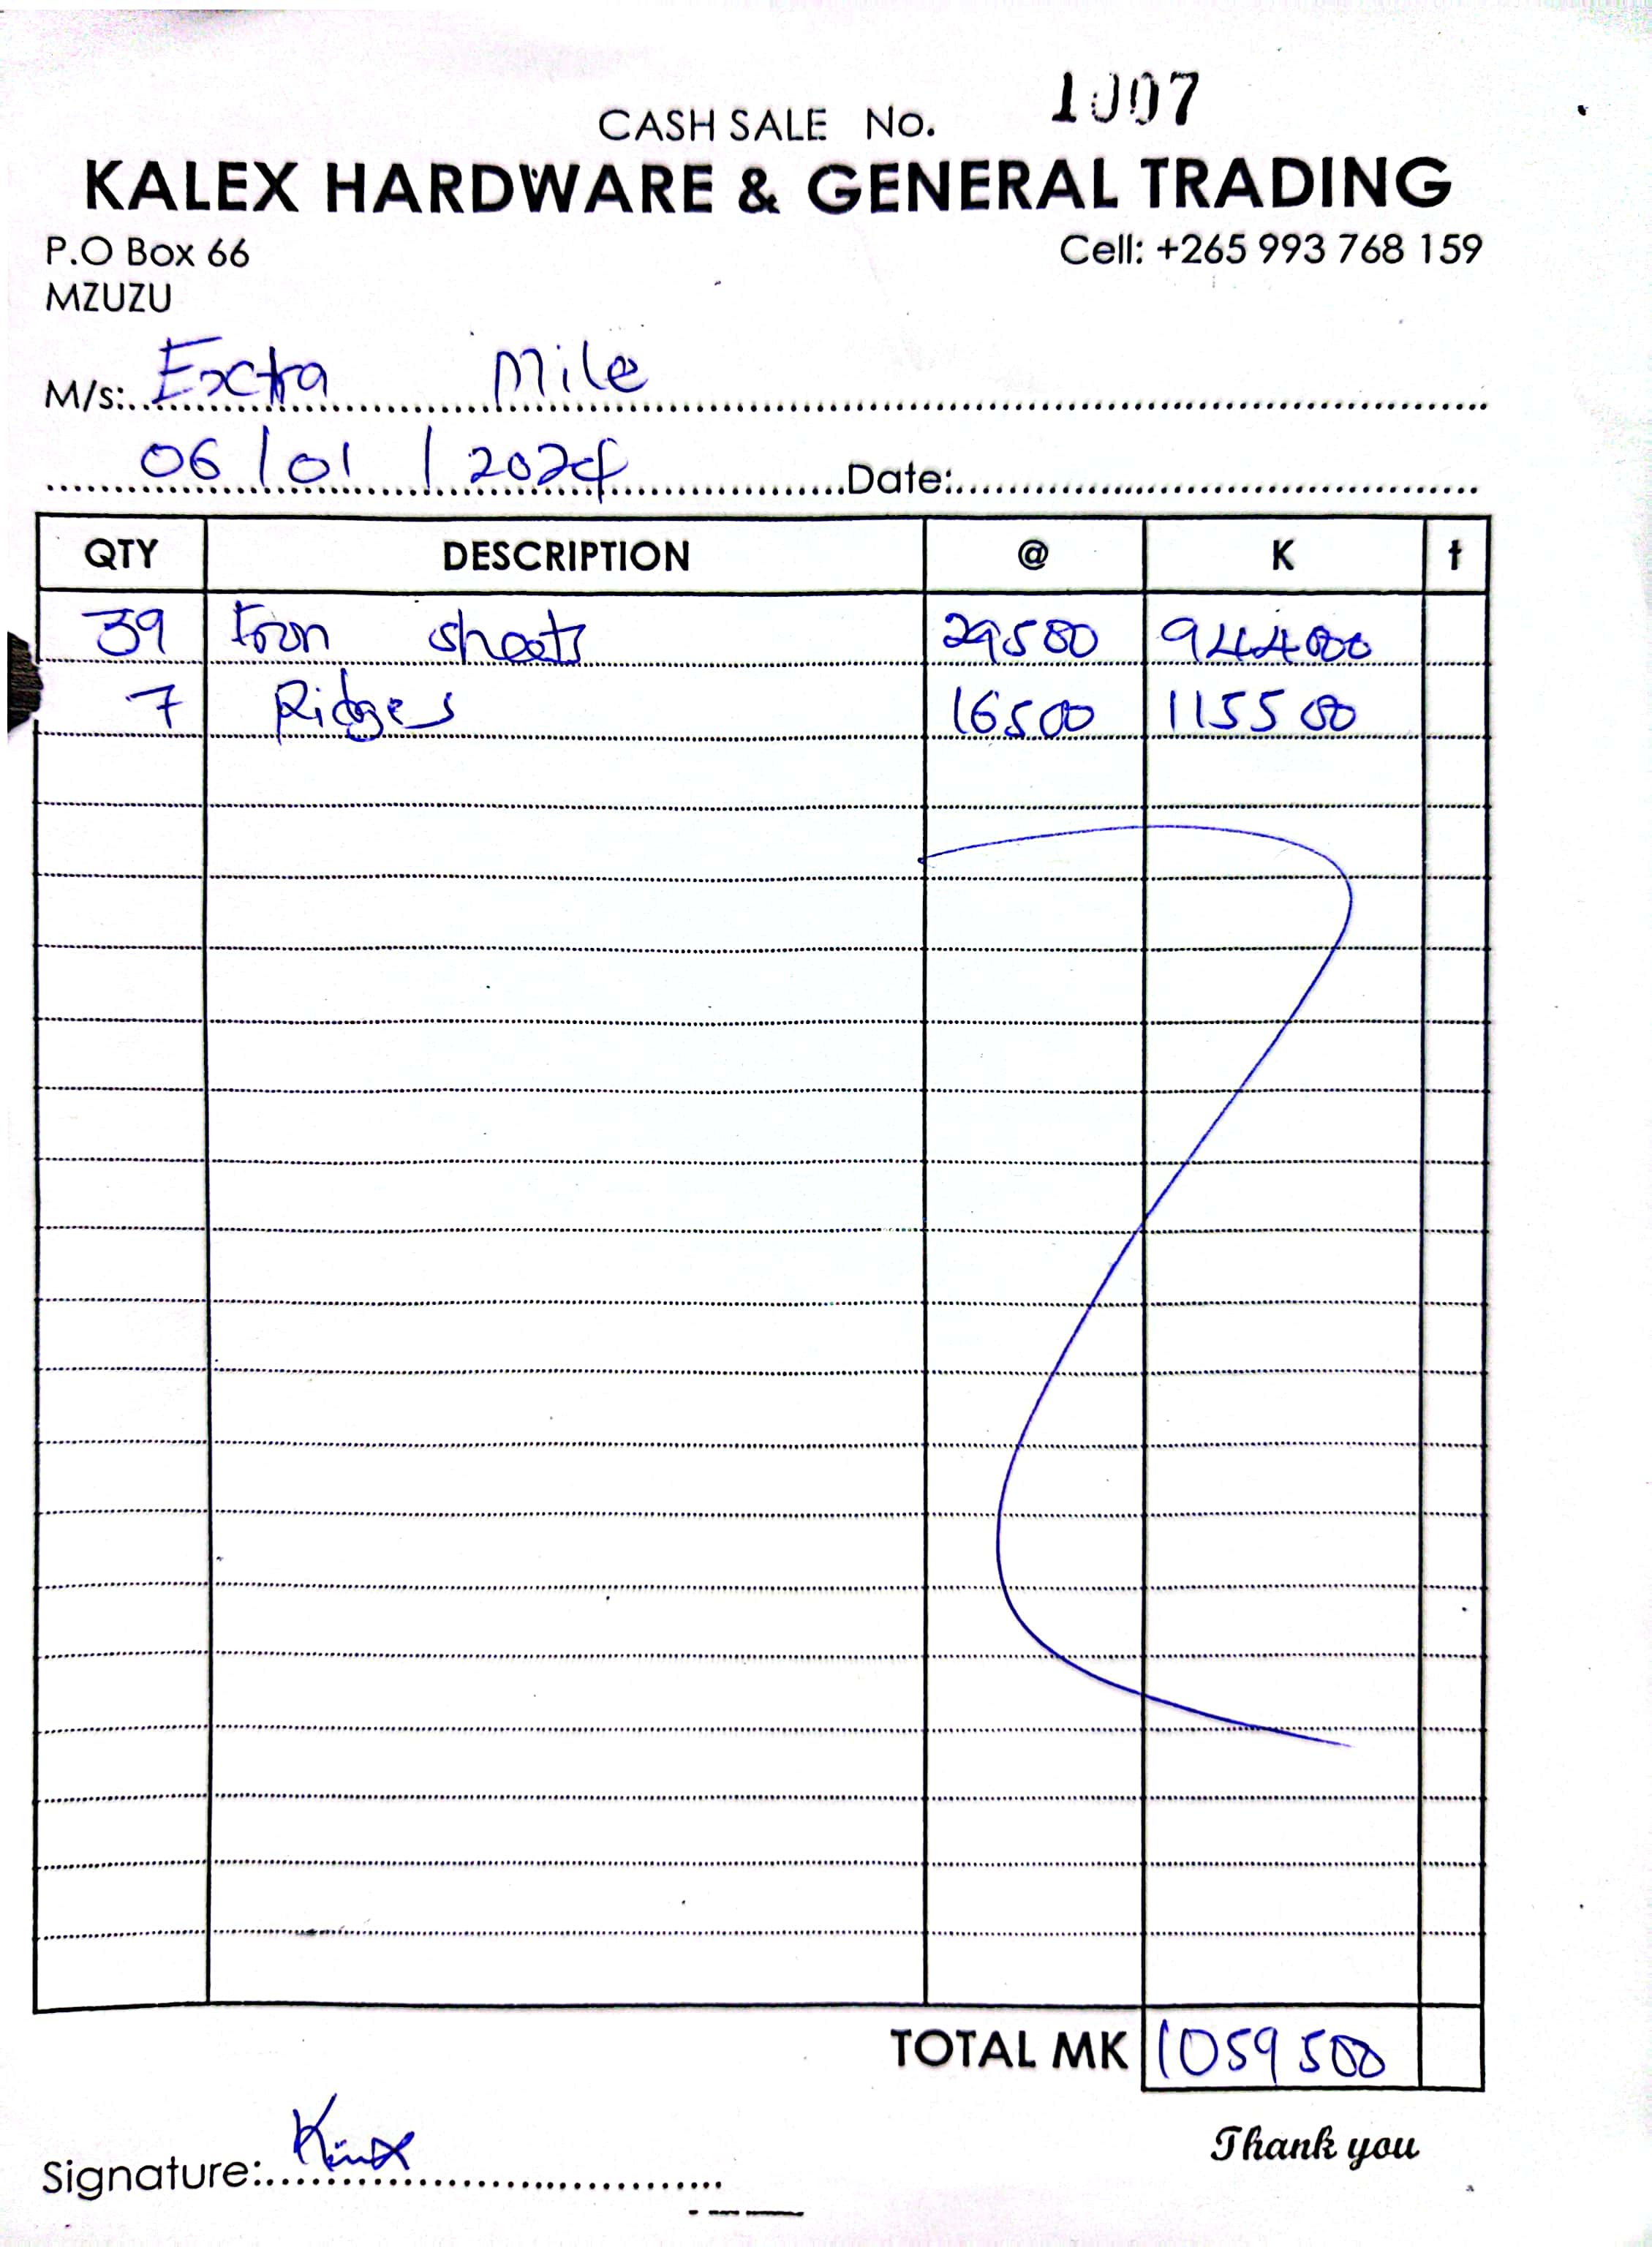 CASH SALE No. 1007
KALEX HARDWARE & GENERAL TRADING
P.O Box 66 Cell: +265 993 768 159
MZUZU
M/s: Exctra Mile
06/01/2024 Date:
QTY DESCRIPTION @ K t
39 Iron sheets 29500 944000
7 Ridges 16500 115500
TOTAL MK 1059500
Thank you
Signature: